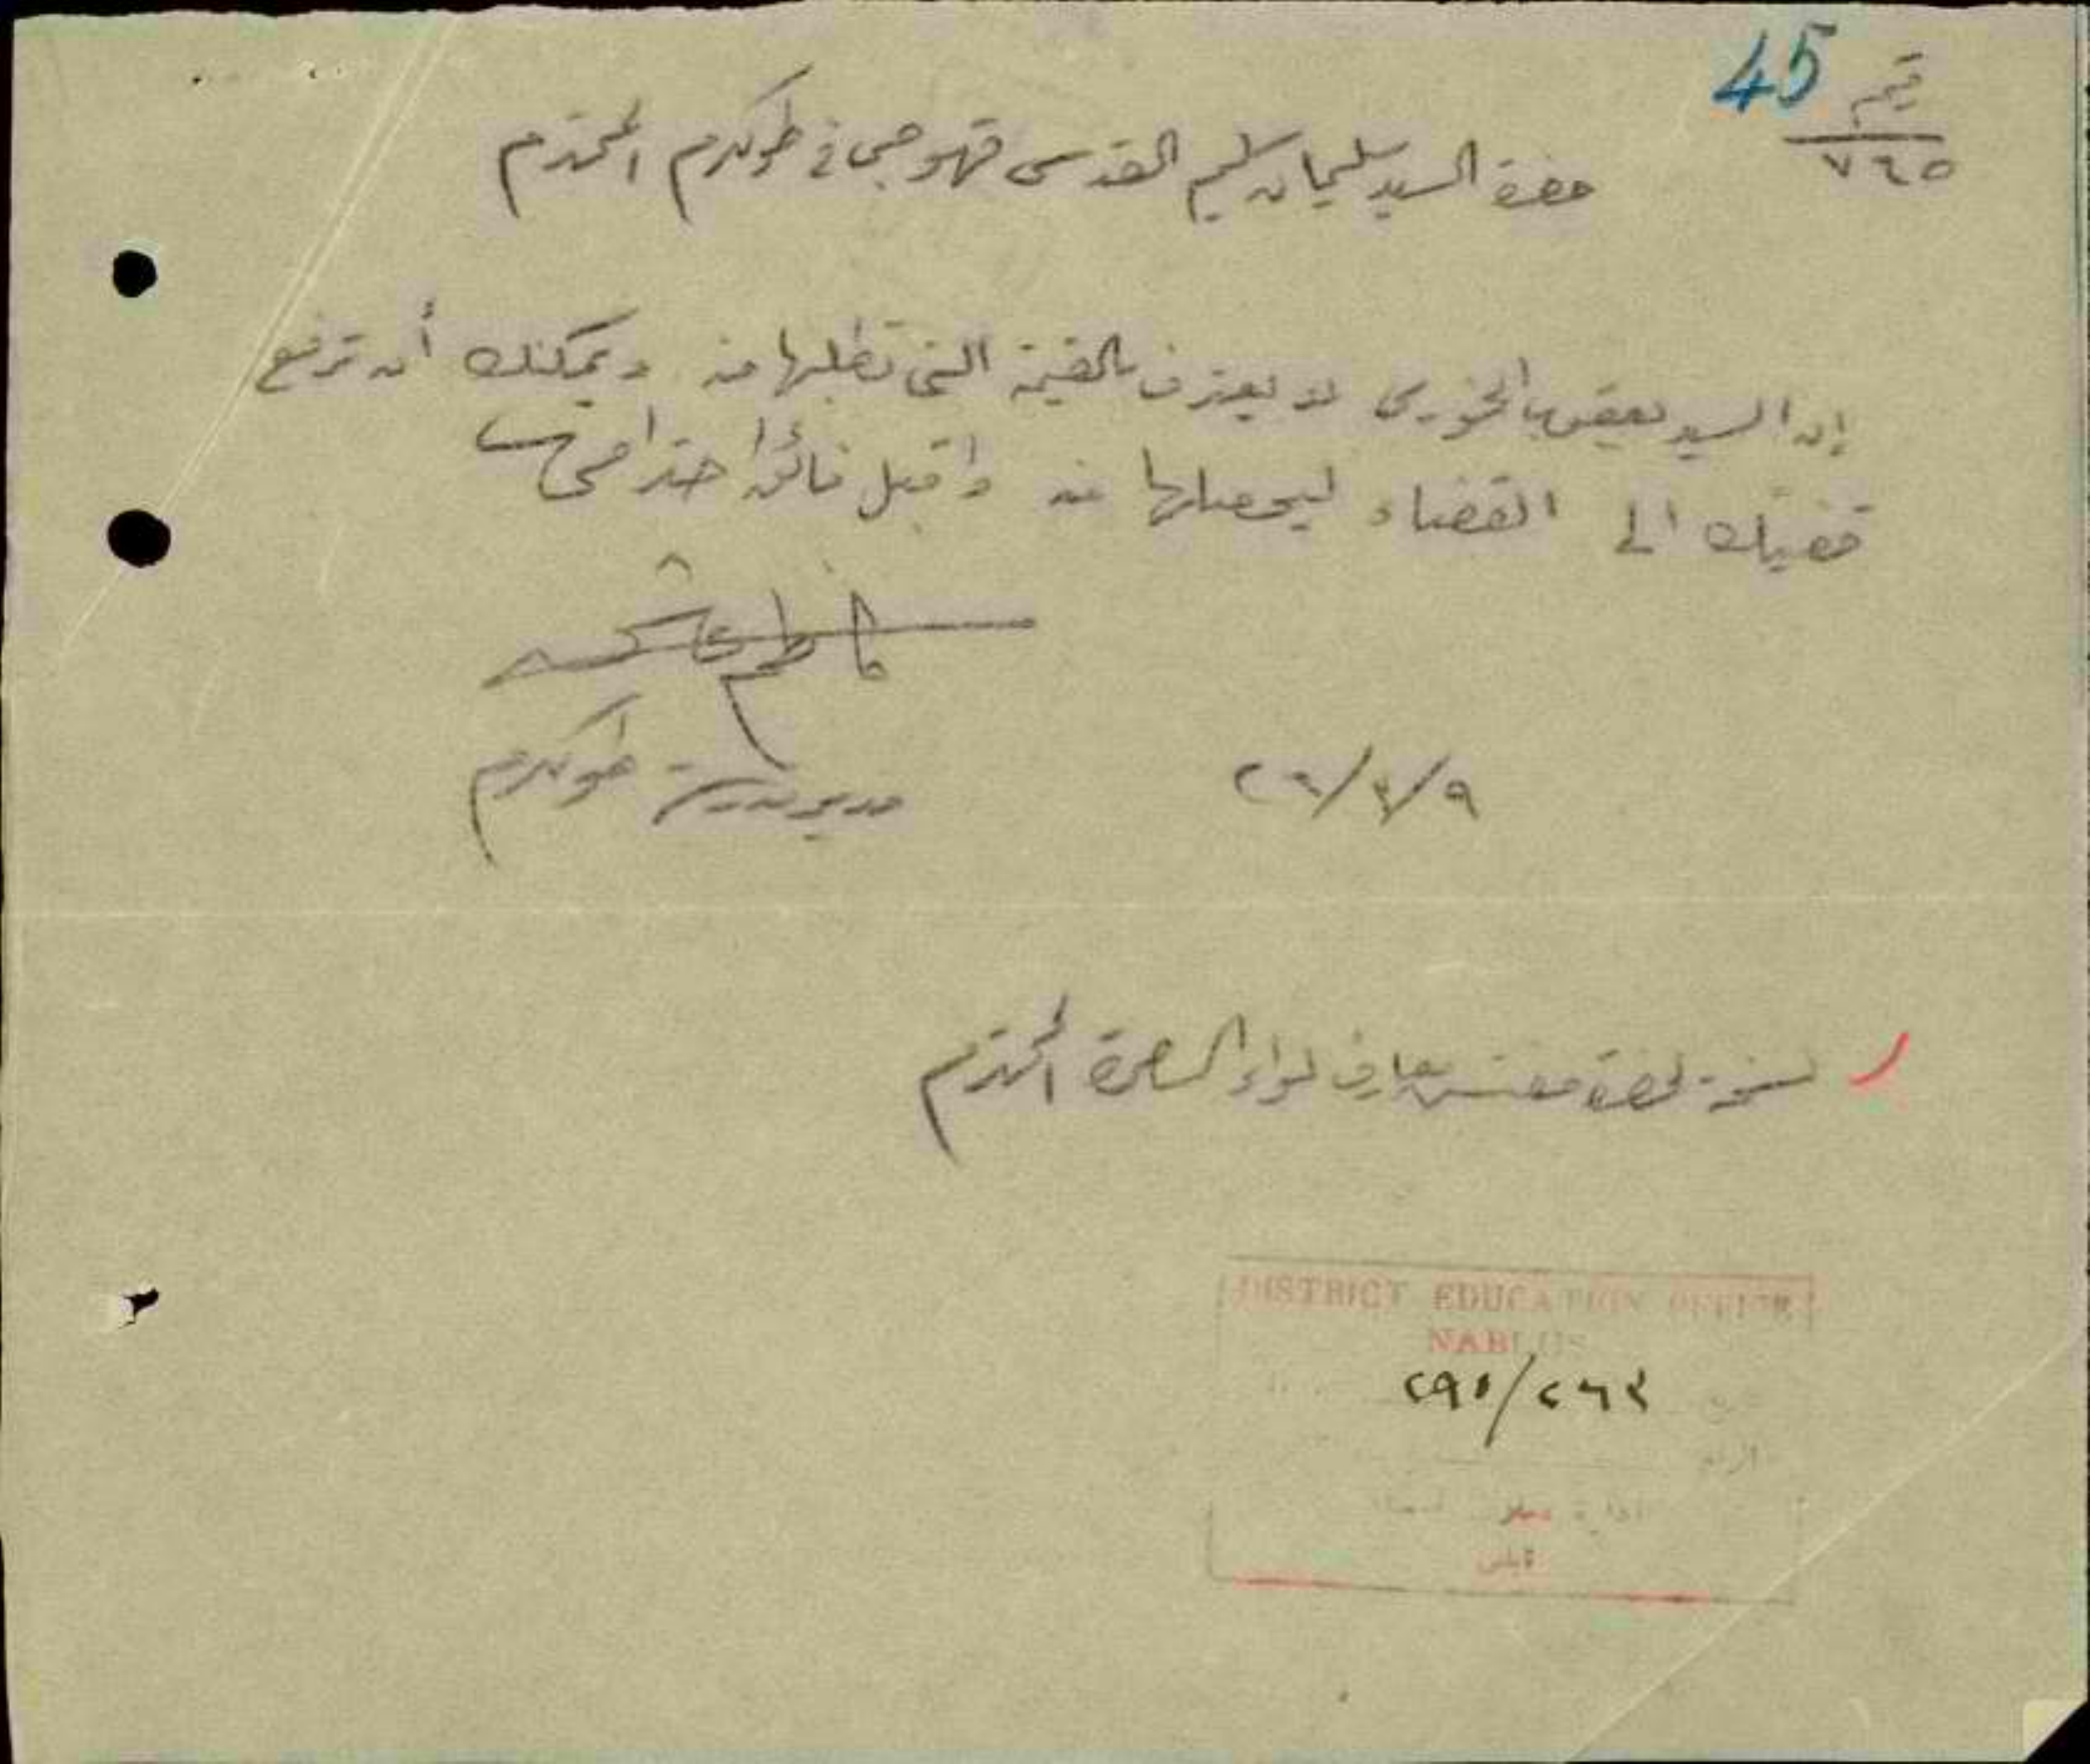 45
رقم
٧٤٥
حضرة السيد سليمان سليم القدسي قهوجي في طولكرم المحترم
إن السيد يعقوب الخوري لا يعترف بالقيمة التي تطلبها منه ويمكنك أن ترفع
قضيتك الى القضاء ليحصلها منه واقبل فائق احترامي
كاظم
مدير مدرسة طولكرم
نسخة لحضرة مفتش معارف لواء السامرة المحترم
DISTRICT EDUCATION OFFICE
NABLUS
نابلس